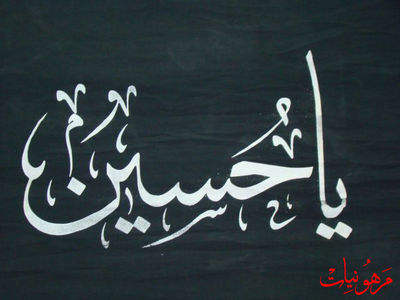 يا حسين
مرهونيات